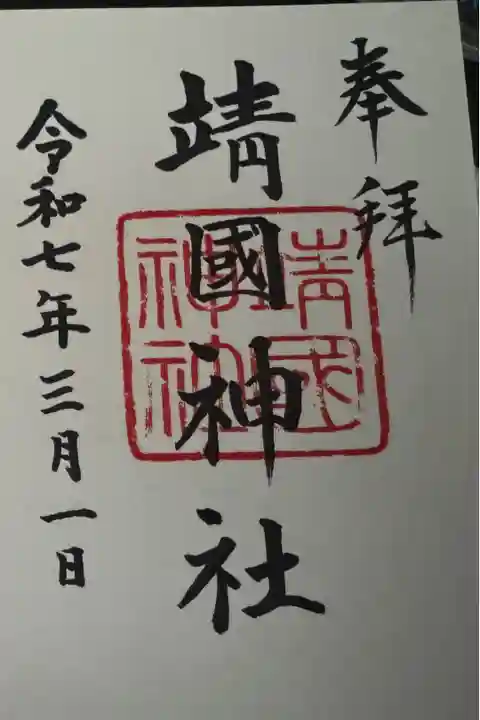 奉拝
靖國神社
靖國神社
令和七年三月一日